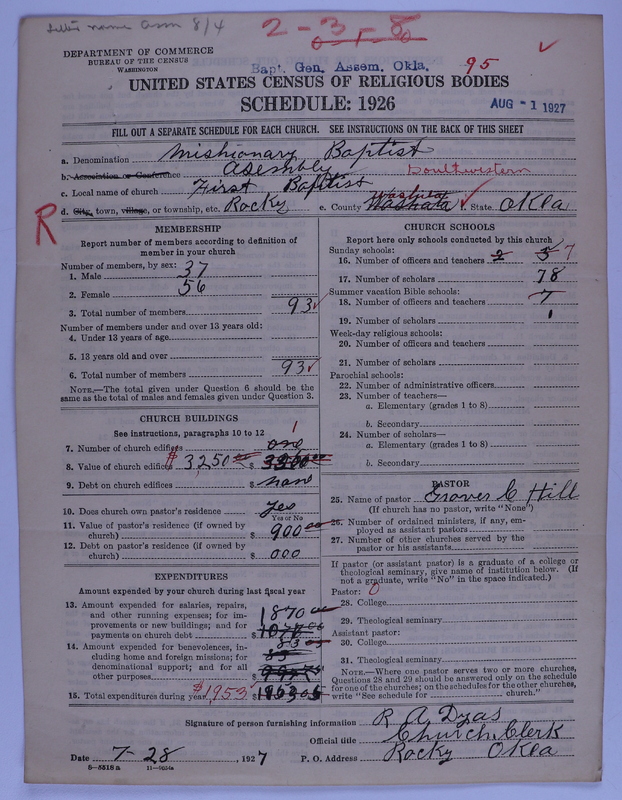 letter name assn 8/4
2-3-8
DEPARTMENT OF COMMERCE
BUREAU OF THE CENSUS
WASHINGTON
Bapt. Gen. Assem. Okla. 95
UNITED STATES CENSUS OF RELIGIOUS BODIES
SCHEDULE: 1926
AUG -1 1927
FILL OUT A SEPARATE SCHEDULE FOR EACH CHURCH. SEE INSTRUCTIONS ON THE BACK OF THIS SHEET
a. Denomination Mishionary Baptist
b. Association or Conference Asembly Southwestern
c. Local name of church First Baptist
d. City, town, village, or township, etc. Rocky e. County Washita f. State Okla
R
MEMBERSHIP
Report number of members according to definition of member in your church
Number of members, by sex:
1. Male 37
2. Female 56
3. Total number of members 93
Number of members under and over 13 years old:
4. Under 13 years of age
5. 13 years old and over
6. Total number of members 93
NOTE.—The total given under Question 6 should be the
same as the total of males and females given under Question 3.
CHURCH BUILDINGS
See instructions, paragraphs 10 to 12
7. Number of church edifices one 1
8. Value of church edifices $3,250 $
9. Debt on church edifices $ none
10. Does church own pastor's residence yes
Yes or No
11. Value of pastor's residence (if owned by
church) $ 900 00
12. Debt on pastor's residence (if owned by
church) $ 000
EXPENDITURES
Amount expended by your church during last fiscal year
13. Amount expended for salaries, repairs,
and other running expenses; for im-
provements or new buildings; and for
payments on church debt $ 1870 00
14. Amount expended for benevolences, in-
cluding home and foreign missions; for
denominational support; and for all
other purposes $ 83 05
15. Total expenditures during year $1953 $
CHURCH SCHOOLS
Report here only schools conducted by this church
Sunday schools:
16. Number of officers and teachers 2 5 7
17. Number of scholars 78
Summer vacation Bible schools:
18. Number of officers and teachers 7
19. Number of scholars 1
Week-day religious schools:
20. Number of officers and teachers
21. Number of scholars
Parochial schools:
22. Number of administrative officers
23. Number of teachers—
a. Elementary (grades 1 to 8)
b. Secondary
24. Number of scholars—
a. Elementary (grades 1 to 8)
b. Secondary
PASTOR
25. Name of pastor Grover C Hill
(If church has no pastor, write "None")
26. Number of ordained ministers, if any, em-
ployed as assistant pastors
27. Number of other churches served by the
pastor or his assistants
If pastor (or assistant pastor) is a graduate of a college or
theological seminary, give name of institution below. (If
not a graduate, write "No" in the space indicated.)
Pastor: 0
28. College
29. Theological seminary
Assistant pastor:
30. College
31. Theological seminary
NOTE.—Where one pastor serves two or more churches,
Questions 28 and 29 should be answered only on the schedule
for one of the churches; on the schedules for the other churches,
write "See schedule for church."
Signature of person furnishing information R A Dyas
Official title Church Clerk
Date 7-28, 1927 P. O. Address Rocky Okla
8-5518a 11-9054a